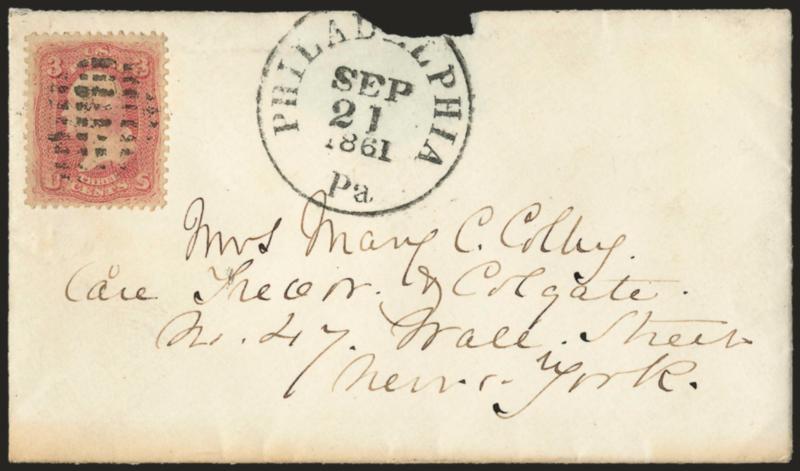 U.S.
3 3
THREE
U CENTS S
PHILADELPHIA
SEP
21
1861
Pa
Mrs Mary C. Colby.
Care Trevor & Colgate.
No. 47. Wall. Street
New-York.